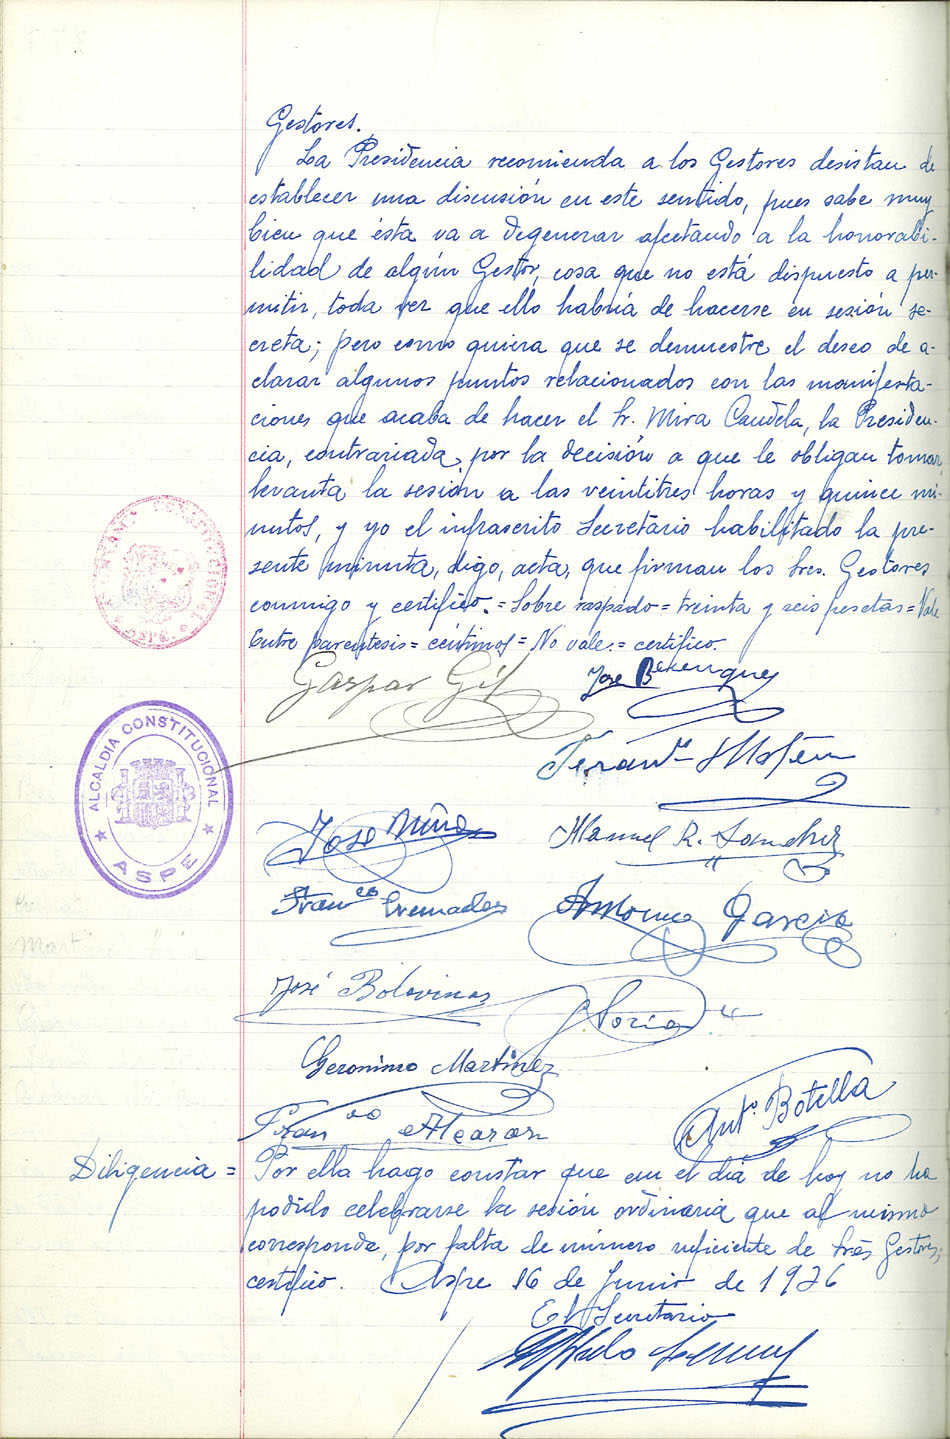 Gestores.
La Presidencia recomienda a los Gestores desistan de
establecer una discusión en este sentido, pues sabe muy
bien que ésta va a degenerar afectando a la honorabi-
lidad de algún Gestor, cosa que no está dispuesto a per-
mitir, toda vez que ello habría de hacerse en sesión se-
creta; pero como quiera que se demuestre el deseo de a-
clarar algunos puntos relacionados con las manifesta-
ciones que acaba de hacer el Sr. Mira Caudela, la Presiden-
cia, contrariada, por la decisión a que le obligan tomar,
levanta la sesión a las veintitres horas y quince mi-
nutos, y yo el infrascrito Secretario habilitado la pre-
sente minuta, digo, acta, que firman los Sres. Gestores
conmigo y certifico. = Sobre raspado = treinta y seis pesetas = Vale
Entre parentesis = céntimos = No vale = certifico.
Gaspar Gil
Jose Berenguer
ALCALDIA CONSTITUCIONAL
ASPE
Jose Miño
Manuel R. Sanchez
Franco Cremades
Antonio Garcia
José Bolovinas
J. Soria
Geronimo Martinez
Antº Botella
Franco Alcaraz
Diligencia = Por ella hago constar que en el día de hoy no ha
podido celebrarse la sesión ordinaria que al mismo
corresponde, por falta de número suficiente de Sres Gestores;
certifico. Aspe 16 de Junio de 1936
El Secretario